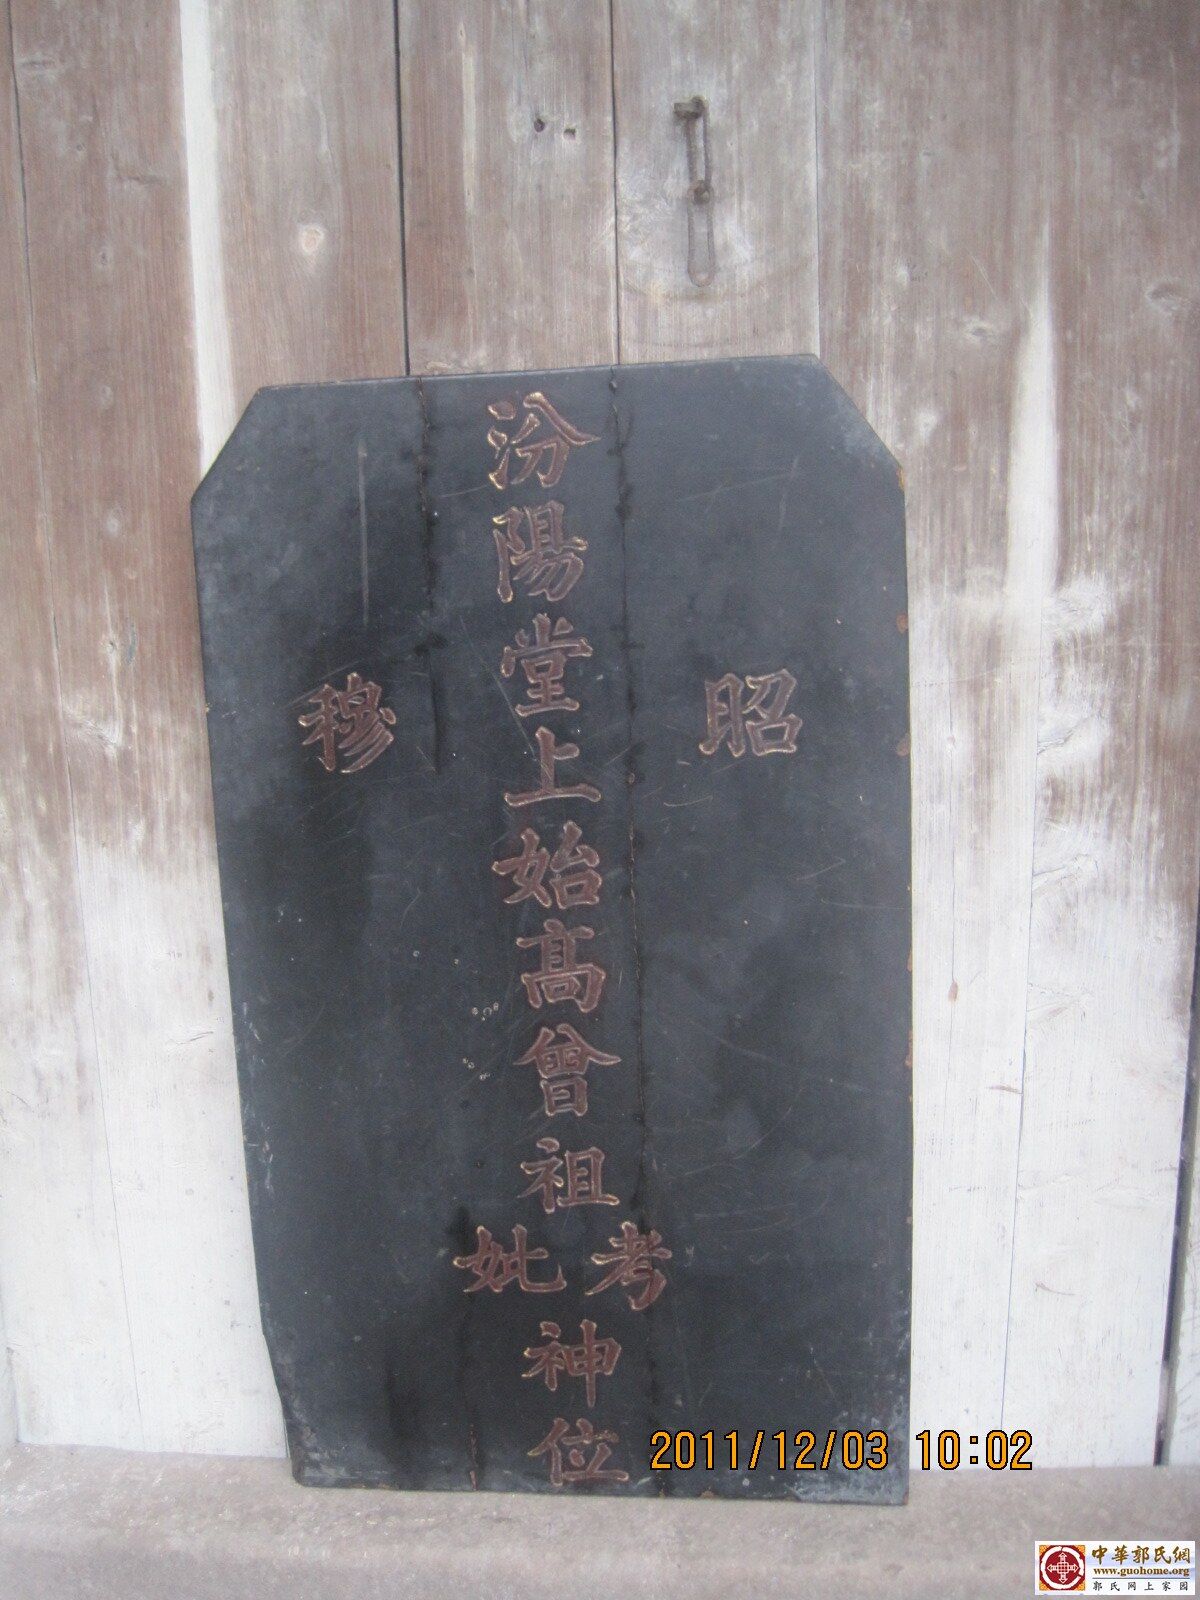 昭
汾陽堂上始高曾祖考妣神位
穆
2011/12/03 10:02
中華郭氏網
www.guohome.org
郭氏网上家园